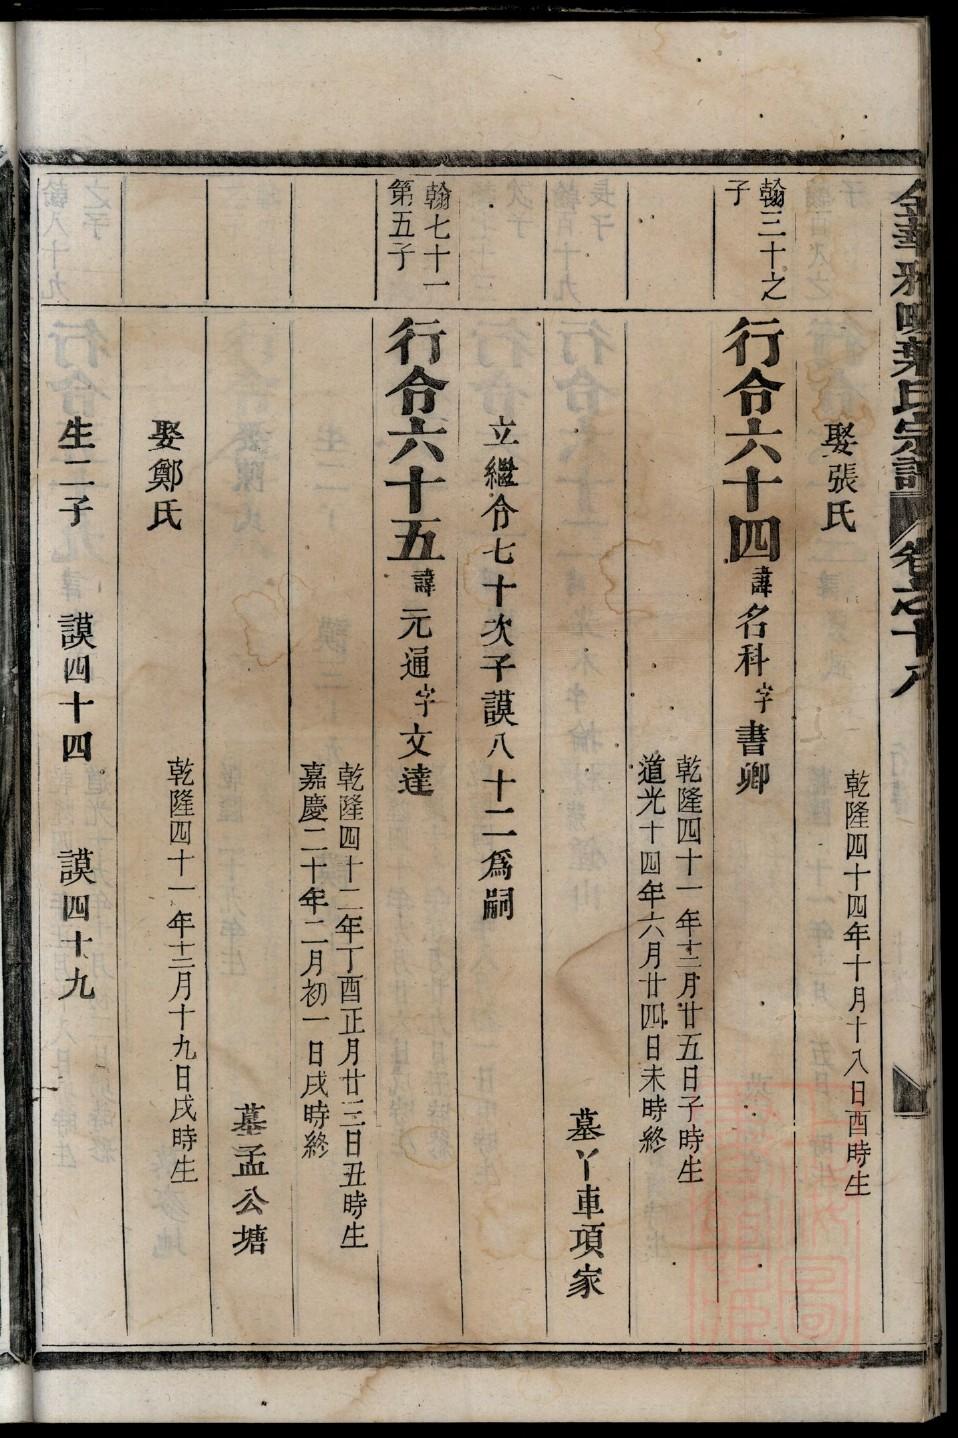 金華 葉氏宗譜 卷之十八
娶張氏
乾隆四十四年十月十八日酉時生
翰三十之
子
行令六十四 諱名科 字書卿
乾隆四十一年十二月廿五日子時生
道光十四年六月廿四日未時終
墓丫車項家
立繼令七十次子謨八十二爲嗣
翰七十一
第五子
行令六十五 諱元通 字文達
乾隆四十二年丁酉正月廿三日丑時生
嘉慶二十年二月初一日戌時終
墓孟公塘
娶鄭氏
乾隆四十一年十二月十九日戌時生
生二子 謨四十四 謨四十九